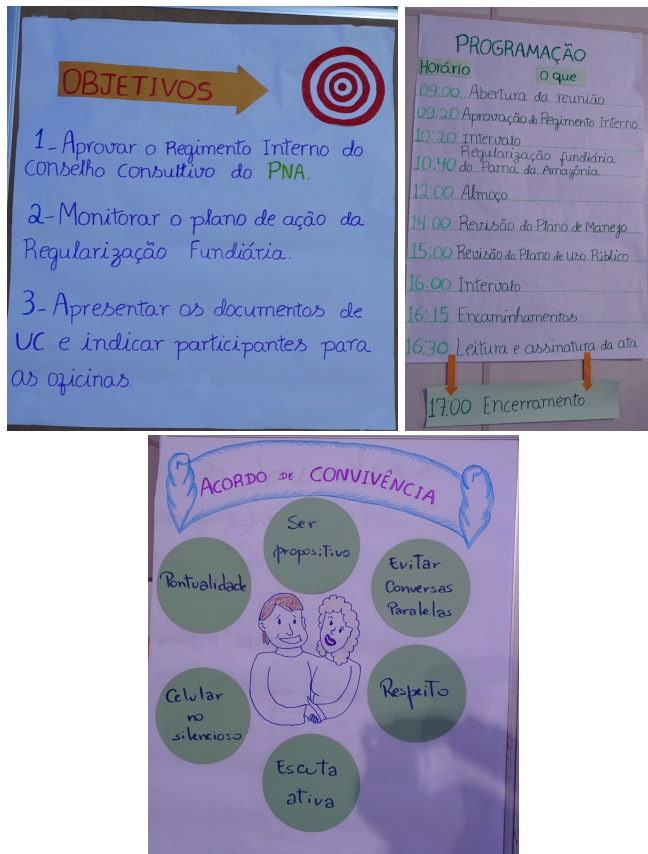 OBJETIVOS
1- Aprovar o Regimento Interno do
Conselho Consultivo do PNA.
2- Monitorar o plano de ação da
Regularização Fundiária.
3- Apresentar os documentos de
UC e indicar participantes para
as oficinas.
PROGRAMAÇÃO
Horário O que
09:00 Abertura da reunião
09:20 Aprovação do Regimento Interno
10:20 Intervalo
10:40 Regularização fundiária
do Parna da Amazônia
12:00 Almoço
14:00 Revisão do Plano de Manejo
15:00 Revisão do Plano de uso Público
16:00 Intervalo
16:15 Encaminhamentos
16:30 Leitura e assinatura da ata
17:00 Encerramento
ACORDO DE CONVIVÊNCIA
Ser
propositivo
Pontualidade
Evitar
Conversas
Paralelas
Celular
no
silencioso
Respeito
Escuta
ativa